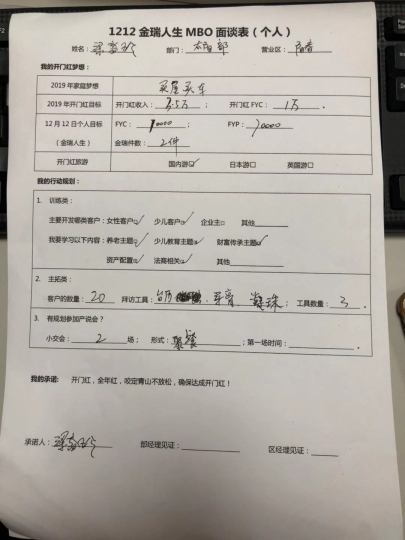 1212 金瑞人生 MBO 面谈表（个人）
姓名： 部门：太阳部 营业区：
我的开门红梦想：
2019 年家庭梦想 买屋买车
2019 年开门红目标 开门红收入：3.5万； 开门红 FYC： 1万 。
12 月 12 日个人目标 FYC： 10000 ； FYP： 20000
（金瑞人生） 金瑞件数： 2件
开门红旅游 国内游☑ 日本游□ 英国游□
我的行动规划：
1. 训练类：
主要开发哪类客户：女性客户☑ 少儿客户☑ 企业主□ 其他
我要学习以下内容：养老主题☑ 少儿教育主题☑ 财富传承主题☑
资产配置☑ 法商相关☑ 其他
2. 主拓类：
客户的数量： 20 拜访工具：台历 、牙膏、 ；工具数量： 3 。
3. 有规划参加产说会？
小交会： 2 场； 形式：聚餐 ；第一场时间： 。
我的承诺： 开门红，全年红，咬定青山不放松，确保达成开门红！
承诺人： 部经理见证： 区经理见证：